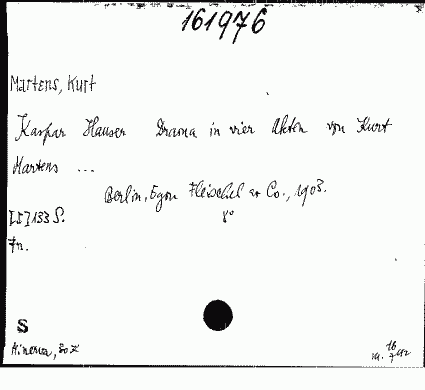 161976
Martens, Kurt
Kaspar Hauser Drama in vier Akten von Kurt
Martens ...
Berlin, Egon Fleischel & Co., 1903.
[I] 133 S. 8°
7n.
S
Minerva, 80 Z